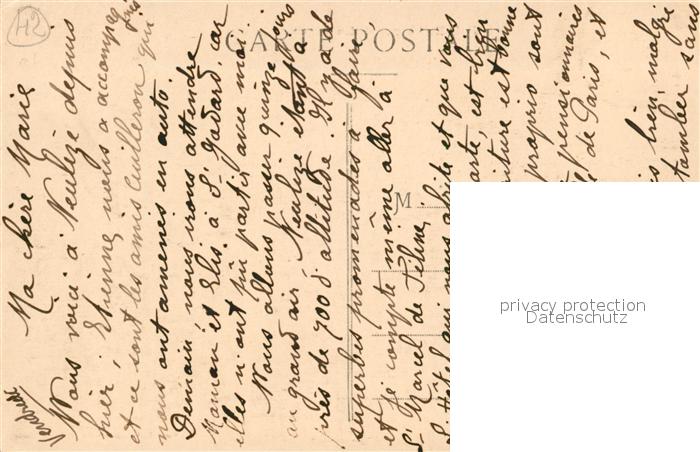 H2
CARTE POSTALE
M
Vendredi
Ma chère Marie
Nous voici à Néulize depuis
hier, Etienne nous a accompagnés
et ce sont les amis Cuilleron qui
nous ont amenés en auto.
Demain nous irons attendre
Maman et Elis. à St Godard, car
elles n'ont pu partir avec moi.
Nous allons passer quinze jours
au grand air, Neulize étant à
près de 700 d'altitude. Il y a de
superbes promenades à faire,
et je compte même aller à
St Marcel de Félines
L'Hôtel qui nous abrite et que vous
est bien
est bonne
proprio sont
pensionnaires
de Paris, et
bien, malgré
tomber sans
privacy protection
Datenschutz